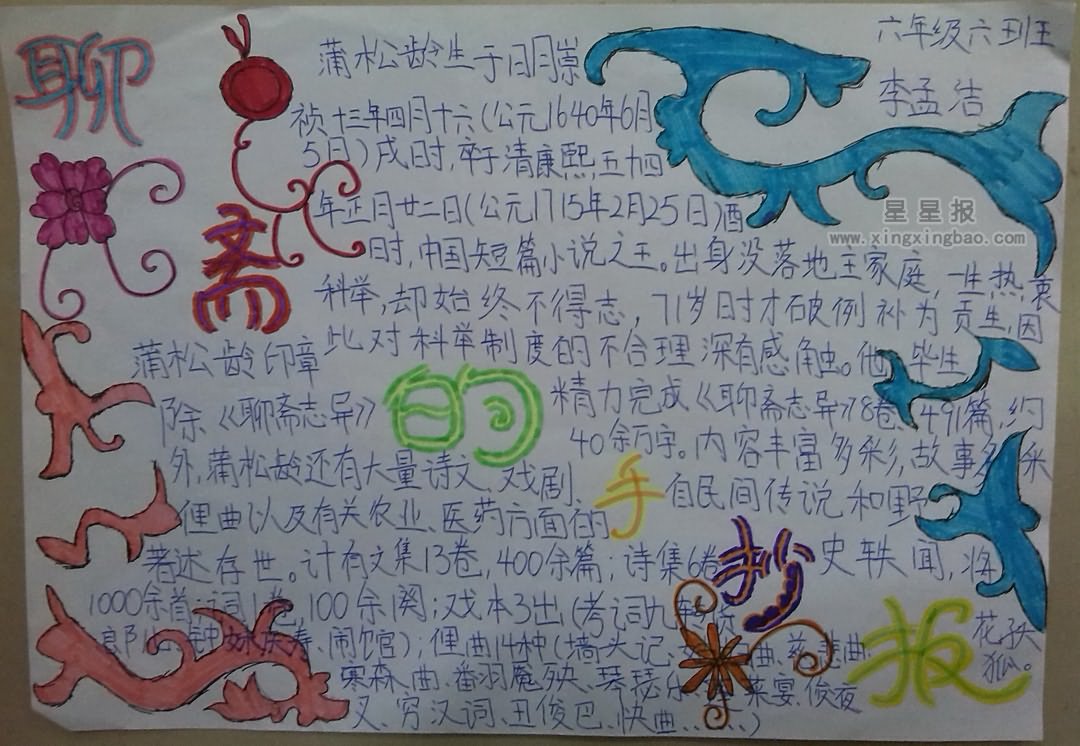 聊
斋
的
手
抄
报
六年级六班王
李孟洁
星星报
www.xingxingbao.com
蒲松龄生于明崇
祯十三年四月十六(公元1640年6月
5日)戌时,卒于清康熙五十四
年正月廿二日(公元1715年2月25日)酒
时,中国短篇小说之王。出身没落地主家庭,一生热衷
科举,却始终不得志,71岁时才破例补为贡生,因
此对科举制度的不合理深有感触。他毕生
精力完成《聊斋志异》8卷、491篇,约
40余万字。内容丰富多彩,故事多来
自民间传说和野
史轶闻,将
花妖
狐。
蒲松龄印章
除《聊斋志异》
外,蒲松龄还有大量诗文、戏剧、
俚曲以及有关农业、医药方面的
著述存世。计有文集13卷,400余篇;诗集6卷
1000余首;词1卷,100余阕;戏本3出(考词九
郎 钟妹庆寿、闹馆);俚曲14种(墙头记、 曲、慈悲曲、
寒森曲、番羽魇殃、琴瑟乐、 莱宴、俊夜
叉、穷汉词、丑俊巴、快曲、